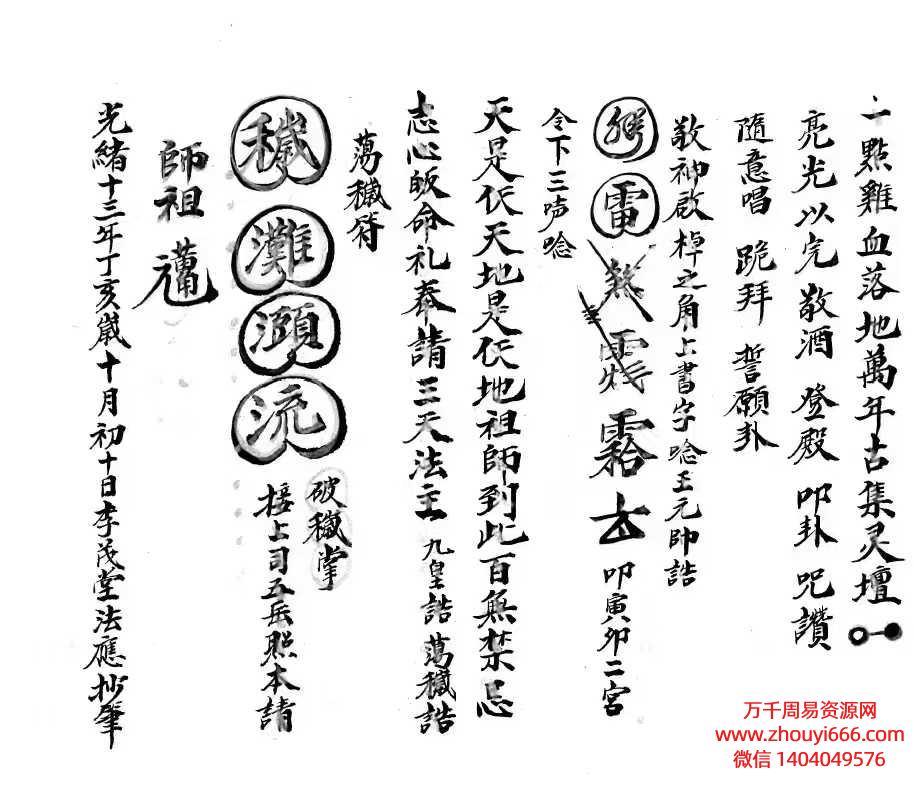 一點雞血落地萬年古集灵壇
亮光以完 敬酒 登殿 叩卦 呪讚
隨意唱 跪拜 誓願卦
敬神啟 棹之角上書字 唸王元帥誥
雷 叩寅卯二宮
令下三吽唸
天是仸天地是仸地祖師到此百無禁忌
志心皈命礼奉請三天法主 九皇誥 蕩穢誥
蕩穢符
破穢掌
穢 灘 澦 流 接上司五岳照本請
師祖
光緒十三年丁亥歲十月初十日李茂堂法應抄筆
万千周易资源网
www.zhouyi666.com
微信 1404049576